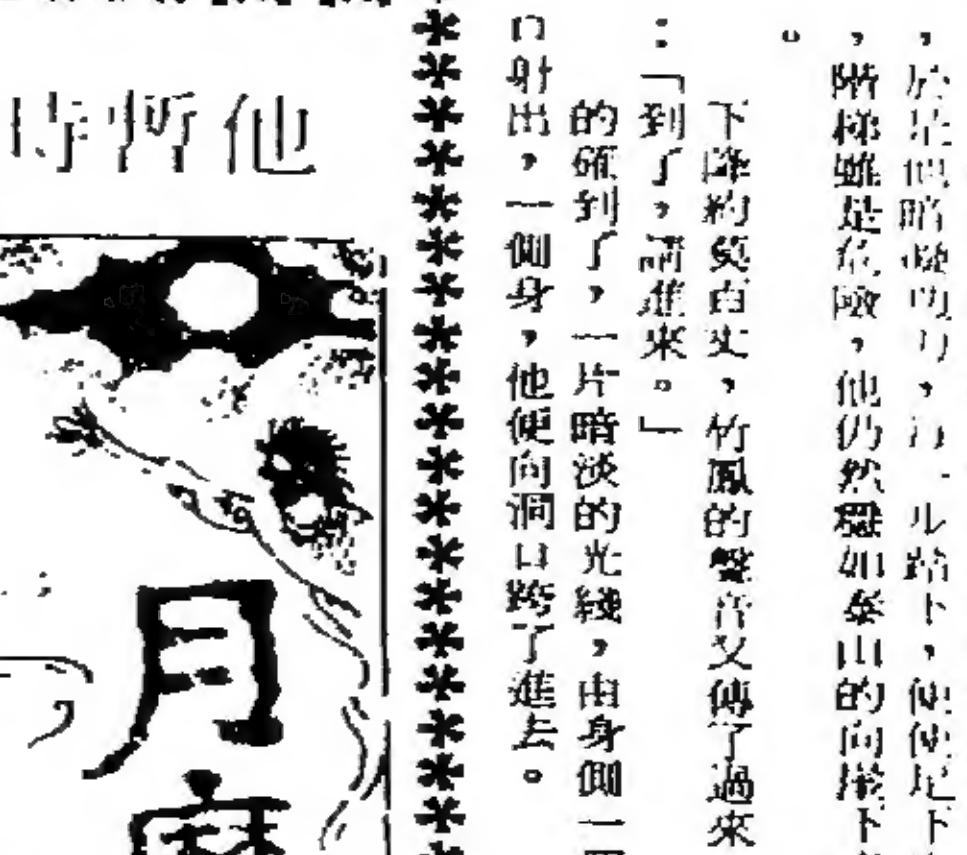 ，於是他暗凝功力，一步踏下，使足下
，階梯雖是危險，他仍然穩如泰山的向下
。
下降約莫百丈，竹鳳的聲音又傳了過來
：「到了，請進來。」
的確到了，一片暗淡的光綫，由身側一
口射出，一側身，他便向洞口跨了進去。
他所
月